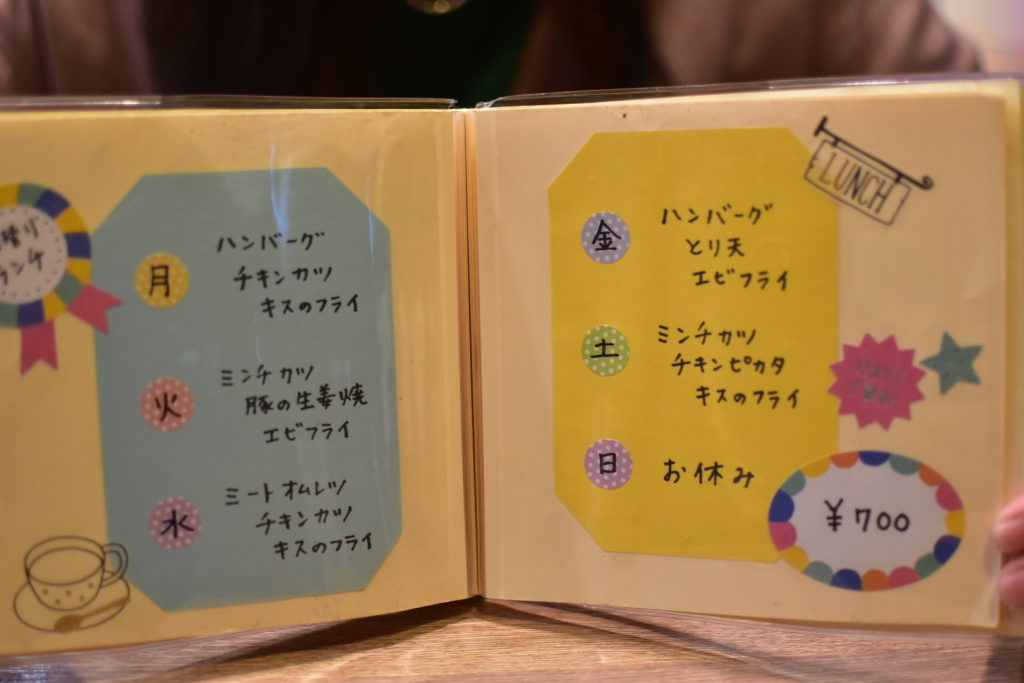 替り
ランチ
月
ハンバーグ
チキンカツ
キスのフライ
火
ミンチカツ
豚の生姜焼
エビフライ
水
ミートオムレツ
チキンカツ
キスのフライ
LUNCH
金
ハンバーグ
とり天
エビフライ
土
ミンチカツ
チキンピカタ
キスのフライ
日
お休み
¥700